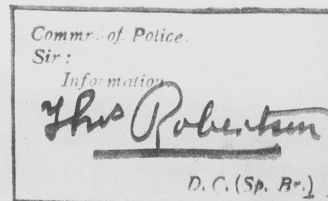 Commr. of Police.
Sir:
Information
Thos Robertson
D. C. (Sp. Br.)